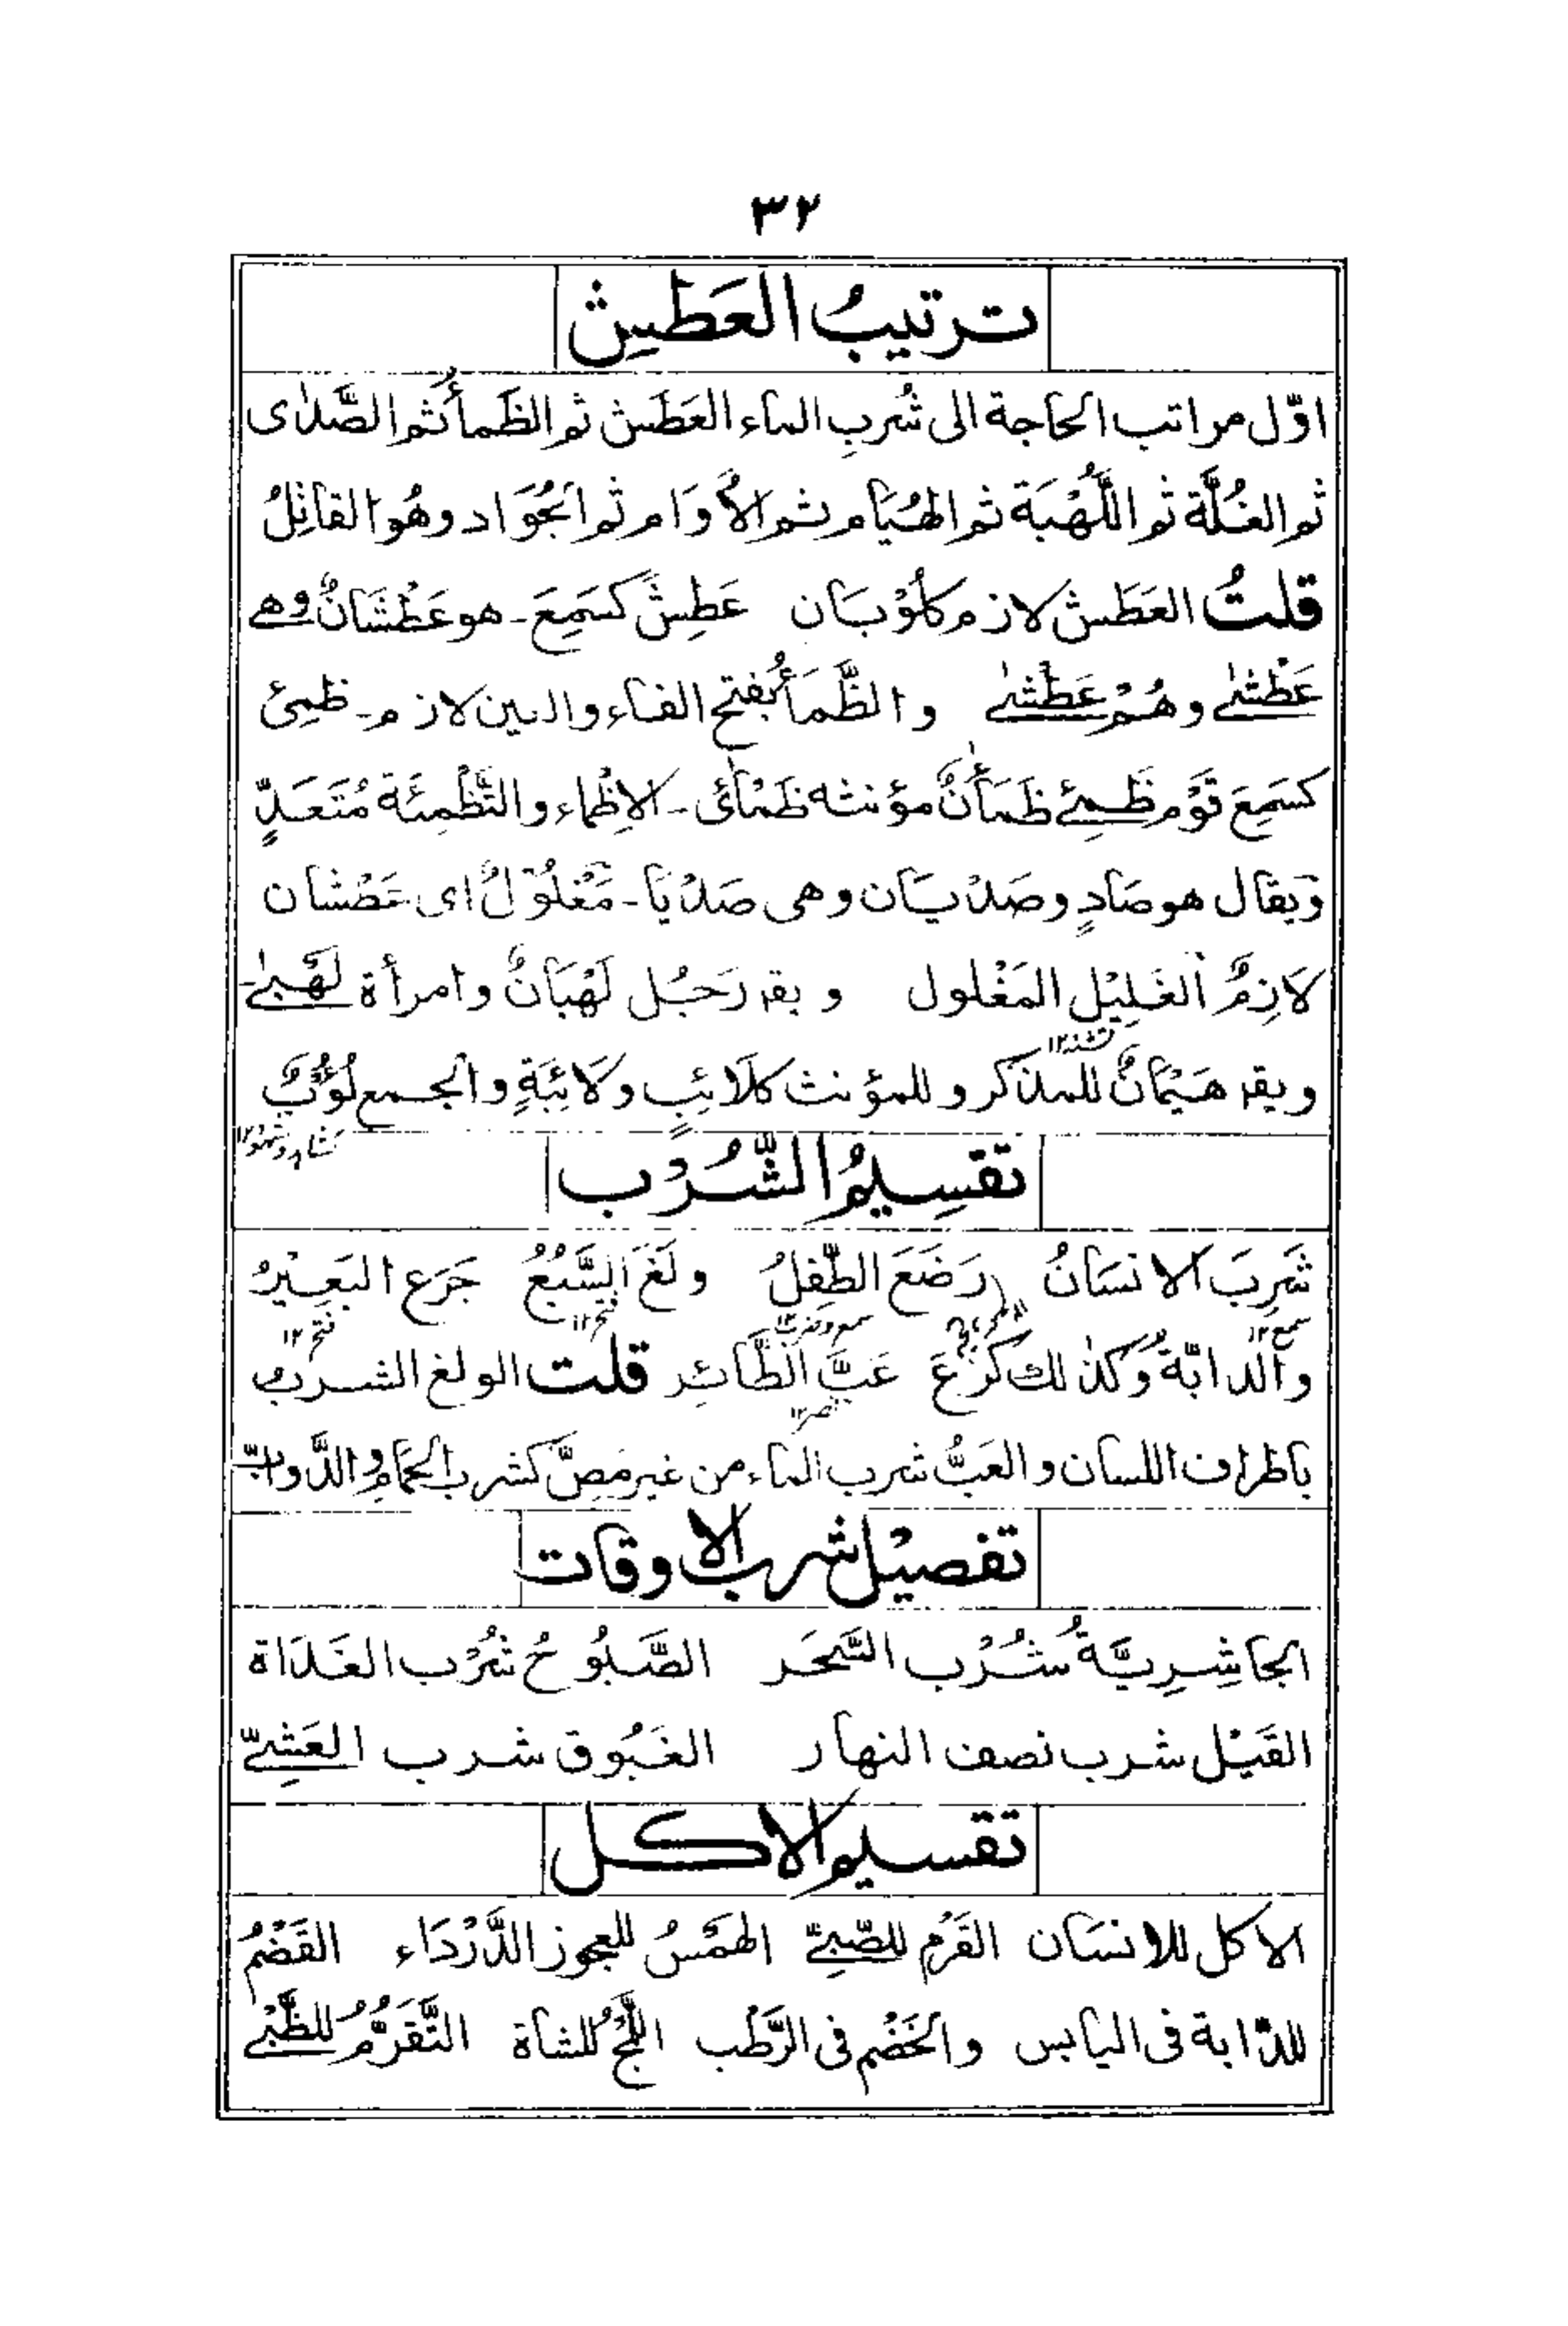 ٣٢
ترتيبُ العَطَشِ
اوّل مراتب الحاجة الى شُربِ الماء العَطَش ثم الظَمأُ ثم الصَّدٰى
ثم الغُلَّة ثم اللُّهْبَة ثم الهُيَام ثم الأُوَام ثم الجُوَاد وهُوا القاتِلُ
قلتُ العَطَش لازم كلُوْبَان عَطِشَ كسَمِعَ - هو عَطْشَانٌ وهي
عَطْشٰى وهُمْ عَطْشٰى والظَّمَأُ بفتح الفاء والعين لازم - ظمِئَ
كسَمِعَ قَوْم ظَمِئ ظَمَأٰنٌ مؤنثه ظَمْأٰى - الاِظْماء والتَّظْمِئَة مُتَعَدٍّ
وَيقال هو صَادٍ وصَدْيَان وهى صَدْيَا - مَغْلُوْلٌ اى عَطْشان
لَازِمٌ الغَلِيْل المَغْلول ويقہ رَجُل لَهْبَانٌ وامرأة لَهْبٰى -
ويقہ هَيْمَانٌ للمذكر وللمؤنث كلَائبٍ ولَائِبَةٍ والجمع لُؤُبٌ
تشنہ١٢
تقسِيمُ الشُّرْب
شَرِبَ الانسَانُ رَضَعَ الطِّفلُ ولَغَ السَّبُعُ جَرَع البَعِيْرُ
سمع١٢ فتح١٢ فتح١٢
والدابّةُ وكذٰلك كَرَعَ عَبَّ الطَّائر قلت الولغ الشرب
نصر١٢
باطراف اللسان والعَبُّ شرب الماء من غير مَصٍّ كشرب الحمَامِ والدَّوابّ
تفصيْل شرب الاوقات
الجاشِرِيَّةُ شُرْب السَّحَر الصَّبُوحُ شُرْب الغَدَاة
القَيْل شرب نصف النهار الغَبُوق شرب العَشِيّ
تقسيم الاكل
الاكل للانسَان القَرْم للصَّبِيّ الهَمْسُ للعجوز الدَّرْدَاء القَضْمُ
للدّابة فى اليابس والخَضْم فى الرَّطْب اللَّجُّ للشاة التَّقَرُّمُ للظَّبْي